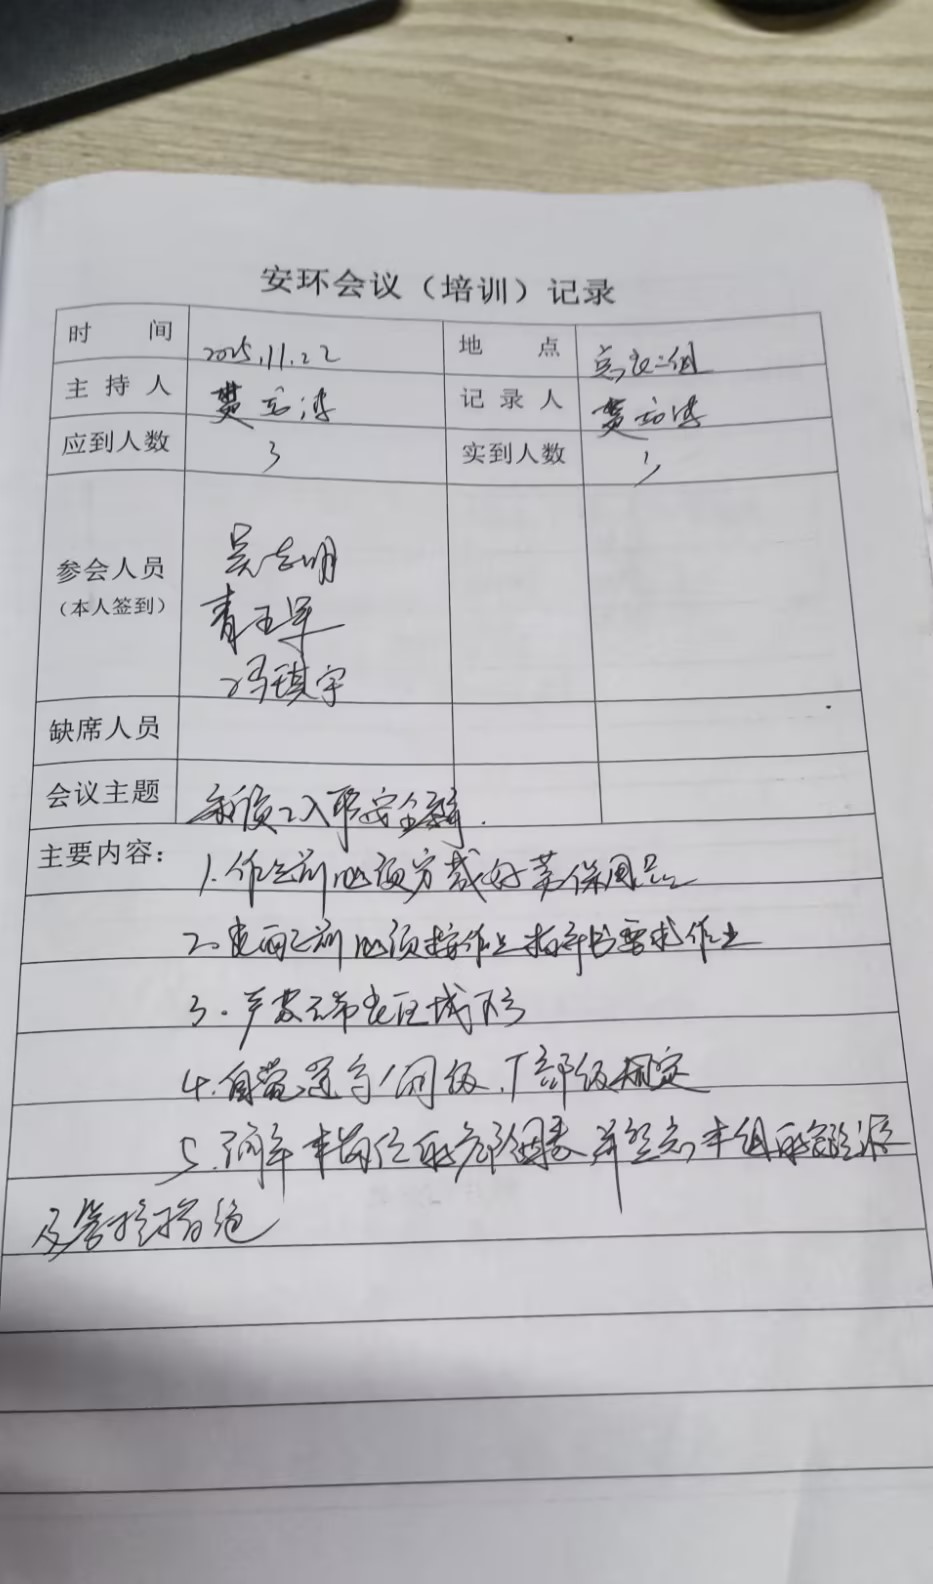 安环会议（培训）记录
时 间 2025.11.22 地 点 二组
主持人 记录人
应到人数 3 实到人数 3
参会人员 吴志明
（本人签到） 青玉军
冯琪宇
缺席人员
会议主题 新员工入职安全
主要内容：
1.作业前必须穿戴好劳保用品
2. 前必须按作业指导书要求作业
3.严禁 区域
4.自觉遵守公司级、厂部级规定
5.了解本岗位的危险因素并熟悉本组的危险源
及管控措施